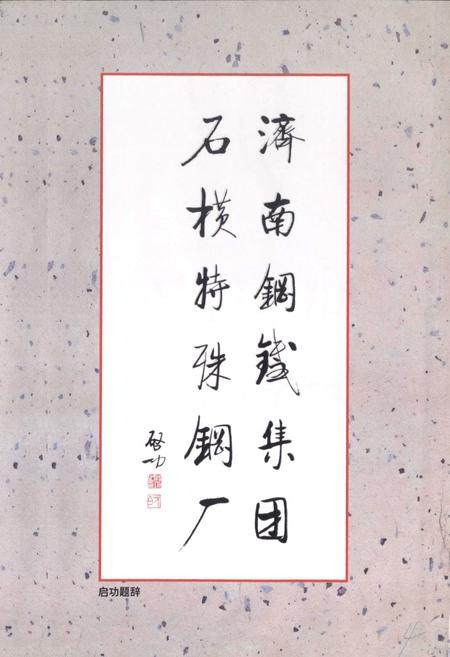 濟南鋼鐵集团
石横特殊鋼厂
啓功
启功题辞